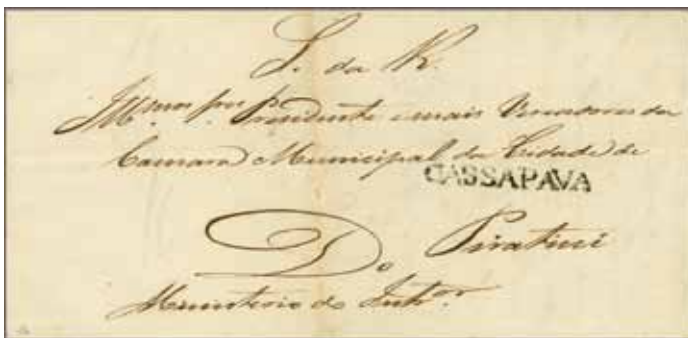 S. da R.
Ill.mos Snrs. Presidente e mais Vereadores da
Camara Municipal da Cidade de
CASSAPAVA
Piratini
Do
Ministerio do Int.or